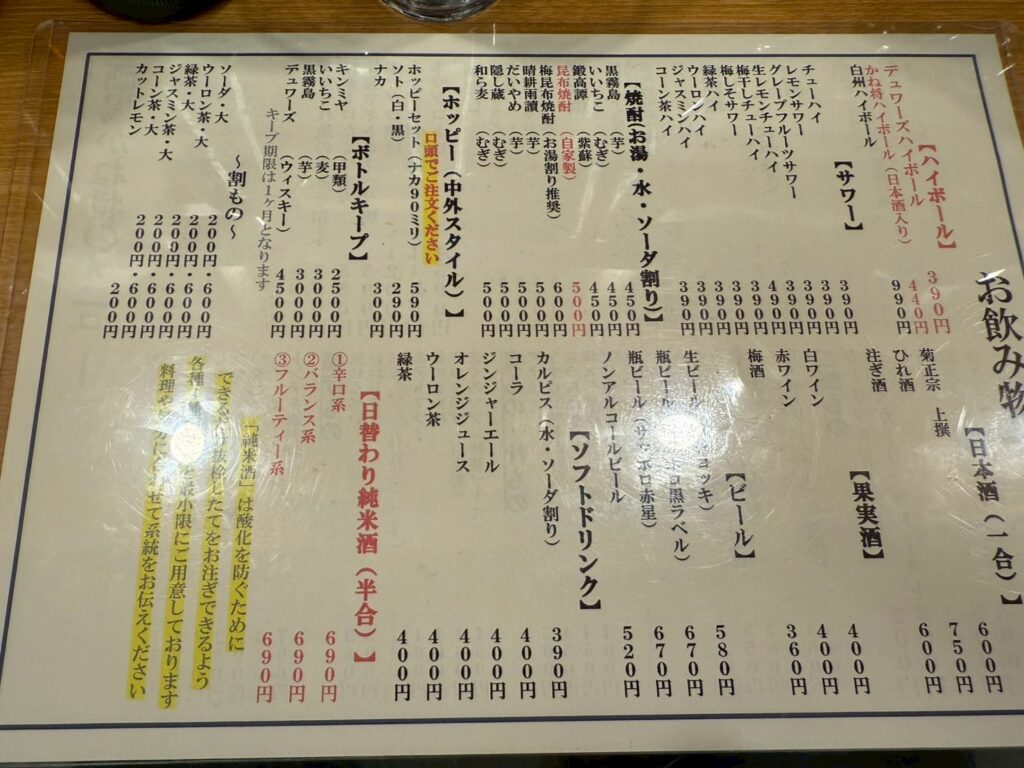 お飲み物
【ハイボール】
デュワーズハイボール 390円
かね将ハイボール(日本酒入り) 440円
白州ハイボール 990円
【サワー】
チューハイ 390円
レモンサワー 390円
グレープフルーツサワー 390円
生レモンチューハイ 490円
梅干しチューハイ 390円
梅しそサワー 390円
緑茶ハイ 390円
ウーロンハイ 390円
ジャスミンハイ 390円
コーン茶ハイ 390円
【焼酎(お湯・水・ソーダ割り)】
黒霧島 (芋) 450円
いいちこ (むぎ) 450円
鍛高譚 (紫蘇) 450円
昆布焼酎 (自家製) 500円
梅昆布焼酎 (お湯割り推奨) 600円
晴耕雨讀 (芋) 500円
だいやめ (芋) 500円
隠し蔵 (むぎ) 500円
和ら麦 (むぎ) 500円
【ホッピー(中外スタイル)】
口頭でご注文ください
ホッピーセット(ナカ90ミリ) 590円
ソト(白・黒) 290円
ナカ 300円
【ボトルキープ】
キンミヤ (甲類) 2500円
いいちこ (麦) 3000円
黒霧島 (芋) 3000円
デュワーズ (ウィスキー) 4500円
キープ期限は1ヶ月となります
~割もの~
ソーダ・大 200円・600円
ウーロン茶・大 200円・600円
緑茶・大 200円・600円
ジャスミン茶・大 200円・600円
コーン茶・大 200円・600円
カットレモン 200円
【日本酒(一合)】
菊正宗 上撰 600円
ひれ酒 750円
注ぎ酒 600円
【果実酒】
白ワイン 400円
赤ワイン 400円
梅酒 360円
【ビール】
生ビール ョッキ) 580円
瓶ビール ロ黒ラベル) 670円
瓶ビール(サッポロ赤星) 670円
ノンアルコールビール 520円
【ソフトドリンク】
カルピス(水・ソーダ割り) 390円
コーラ 400円
ジンジャーエール 400円
オレンジジュース 400円
ウーロン茶 400円
緑茶 400円
【日替わり純米酒(半合)】
①辛口系 690円
②バランス系 690円
③フルーティー系 690円
「純米酒」は酸化を防ぐために
できるだけ抜栓したてをお注ぎできるよう
各種 最小限にご用意しております
料理や に合わせて系統をお伝えください